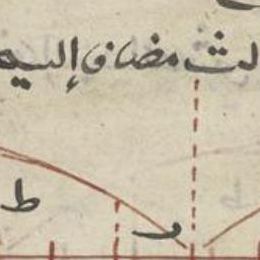 لث مضاف إليه
ط
ر